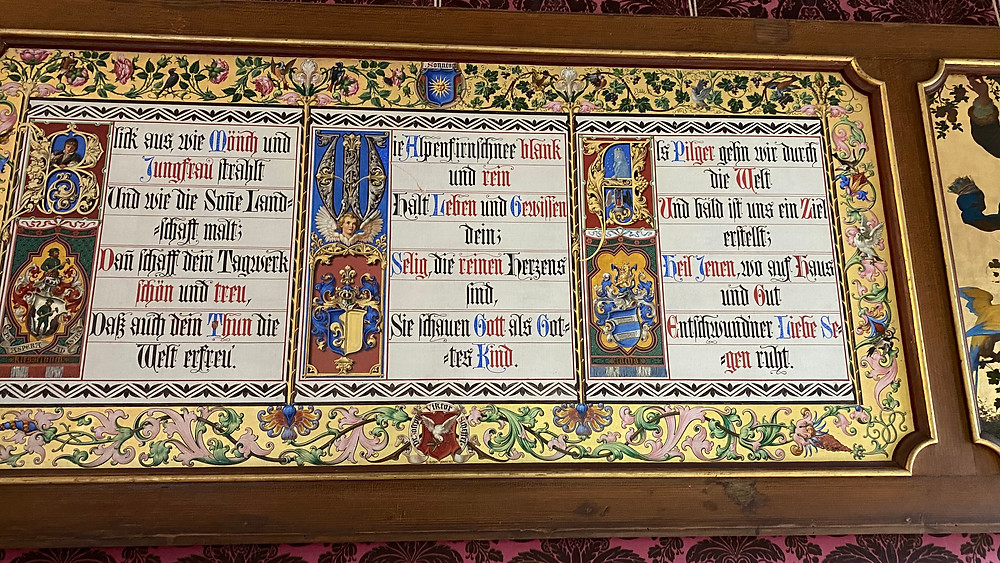 Sonnens
Blick aus wie Mönch und
Jungfrau strahlt
Und wie die Soñe Land-
-schaft malt;
Dañ schaff dein Tagwerk
schön und treu,
Daß auch dein Thun die
Welt erfreu'.
Wie Alpenfirnschnee blank
und rein
Halt Leben und Gewissen
dein;
Selig, die reinen Herzens
sind,
Sie schauen Gott als Got-
-tes Kind.
Als Pilger gehn wir durch
die Welt
Und bald ist uns ein Ziel
erstellt;
Heil Jenen, wo auf Haus
und Gut
Entschwundner Liebe Se-
-gen ruht.
ASPERA
Viktor